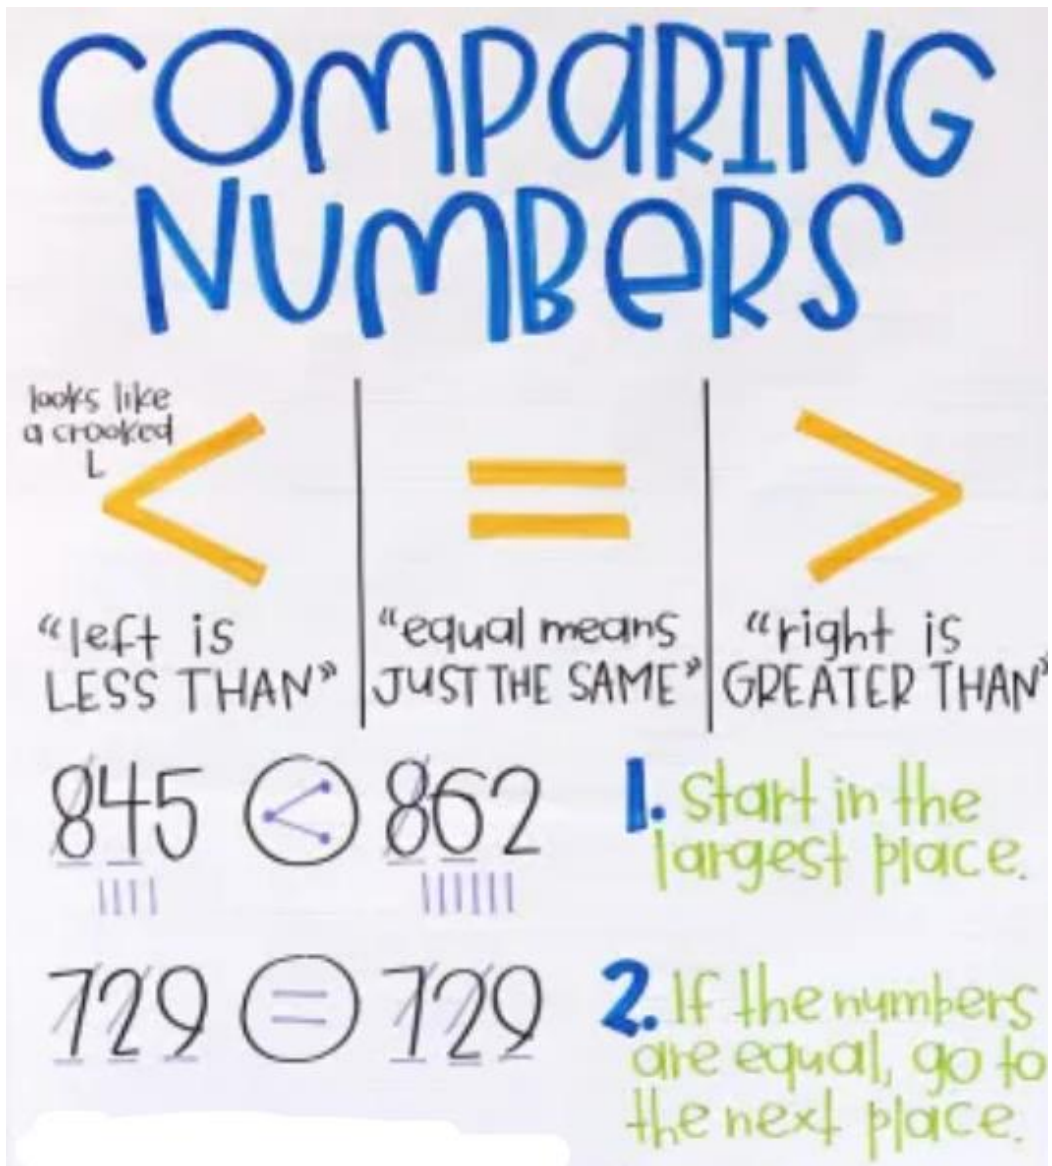 COMPARING
NUMBERS
looks like
a crooked
L
<
=
>
“left is
LESS THAN”
“equal means
JUST THE SAME”
“right is
GREATER THAN”
845 < 862
1. Start in the
largest place.
729 = 729
2. If the numbers
are equal, go to
the next place.